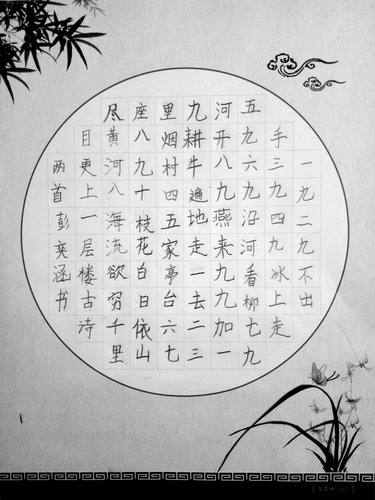 一九二九不出
手三九四九冰上走
五九六九沿河看柳七九
河开八九燕来九九加一
九耕牛遍地走一去二三
里烟村四五家亭台六七
座八九十枝花白日依山
尽黄河入海流欲穷千里
目更上一层楼古诗
两首彭奕涵书